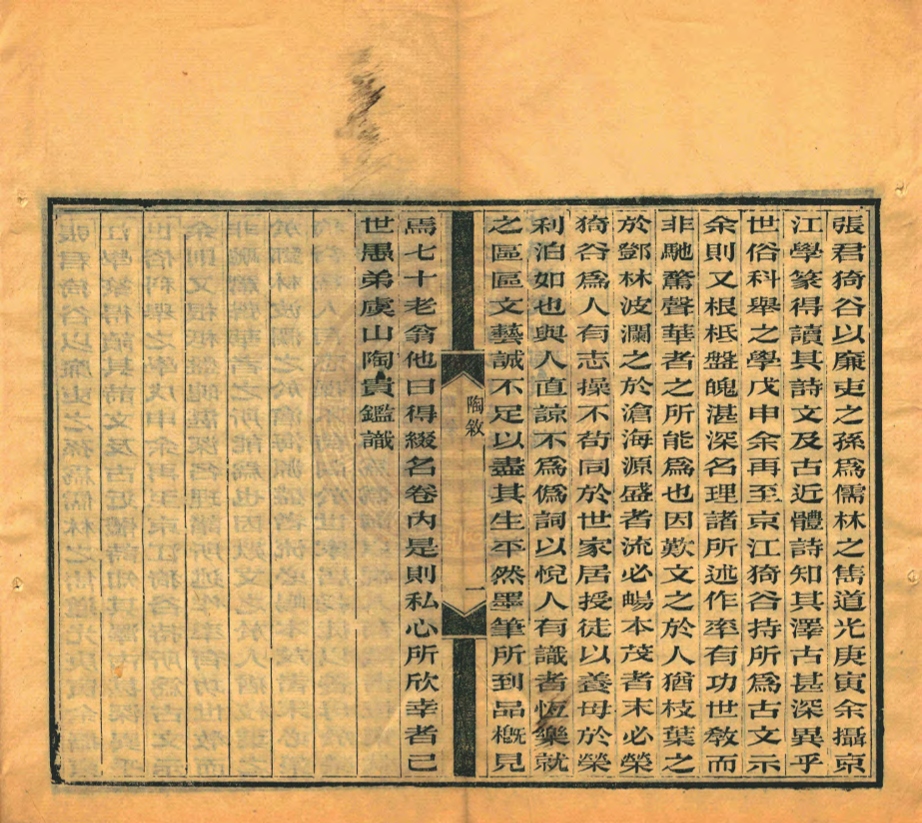 張君猗谷以廉吏之孫爲儒林之雋道光庚寅余攝京
江學篆得讀其詩文及古近體詩知其澤古甚深異乎
世俗科舉之學戊申余再至京江猗谷持所爲古文示
余則又根柢盤魄湛深名理諸所述作率有功世敎而
非馳驁聲華者之所能爲也因歎文之於人猶枝葉之
於鄧林波瀾之於滄海源盛者流必暢本茂者末必榮
猗谷爲人有志操不苟同於世家居授徒以養母於榮
利泊如也與人直諒不爲僞詞以悅人有識者恆樂就
之區區文藝誠不足以盡其生平然墨筆所到品槪見
陶敘
一
焉七十老翁他日得綴名卷內是則私心所欣幸者已
世愚弟虞山陶貴鑑識